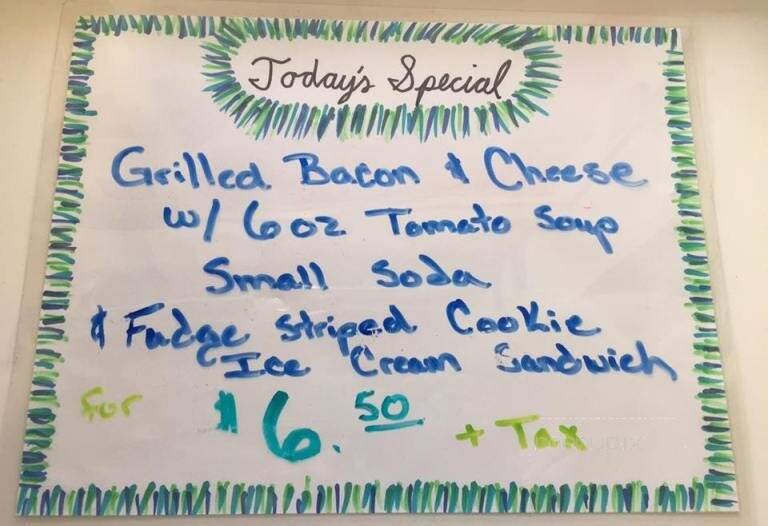 Today's Special
Grilled Bacon & Cheese
w/ 6 oz Tomato Soup
Small Soda
& Fudge Striped Cookie
Ice Cream Sandwich
for $6.50 + Tax